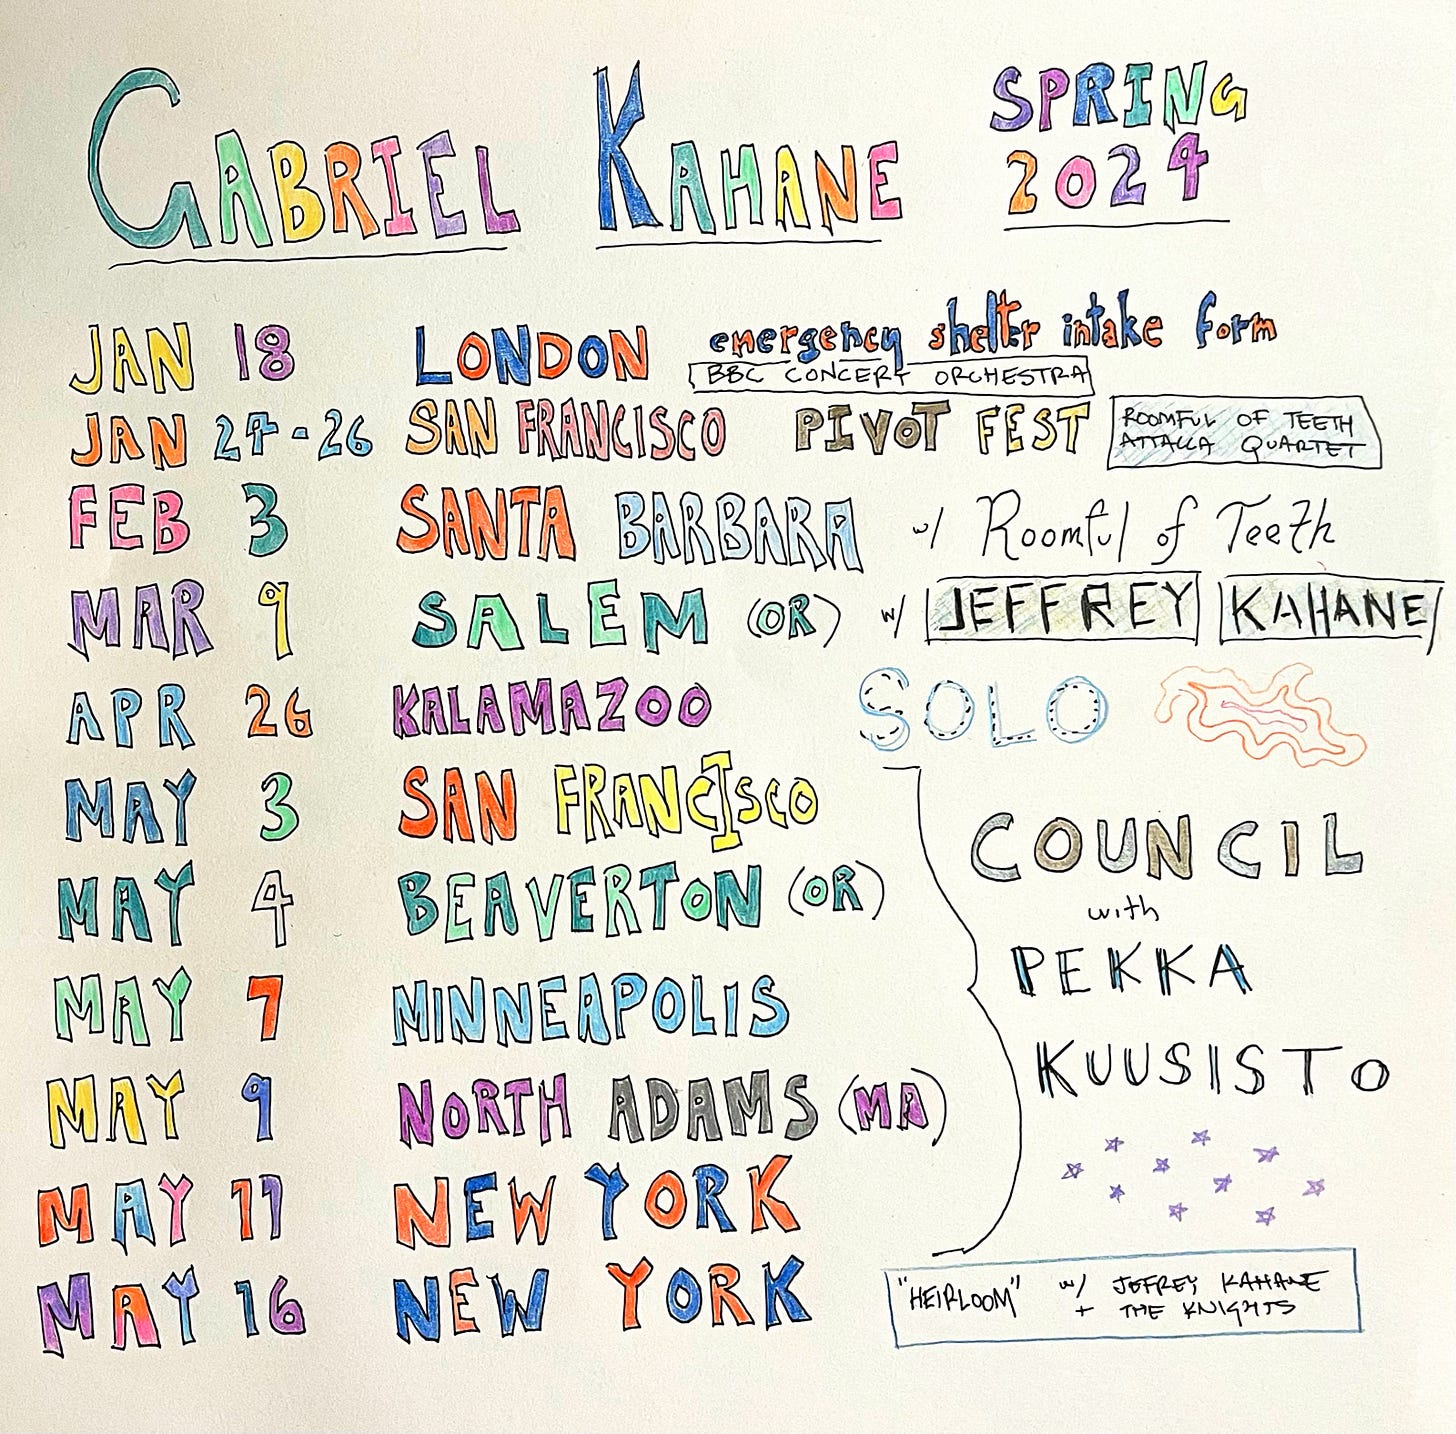 GABRIEL KAHANE SPRING
2024
JAN 18 LONDON emergency shelter intake form
BBC CONCERT ORCHESTRA
JAN 24-26 SAN FRANCISCO PIVOT FEST ROOMFUL OF TEETH
ATTACCA QUARTET
FEB 3 SANTA BARBARA w/ Roomful of Teeth
MAR 9 SALEM (OR) w/ JEFFREY KAHANE
APR 26 KALAMAZOO SOLO
MAY 3 SAN FRANCISCO
MAY 4 BEAVERTON (OR)
MAY 7 MINNEAPOLIS
MAY 9 NORTH ADAMS (MA)
MAY 11 NEW YORK
COUNCIL
with
PEKKA
KUUSISTO
MAY 16 NEW YORK "HEIRLOOM" w/ JEFFREY KAHANE
+ THE KNIGHTS